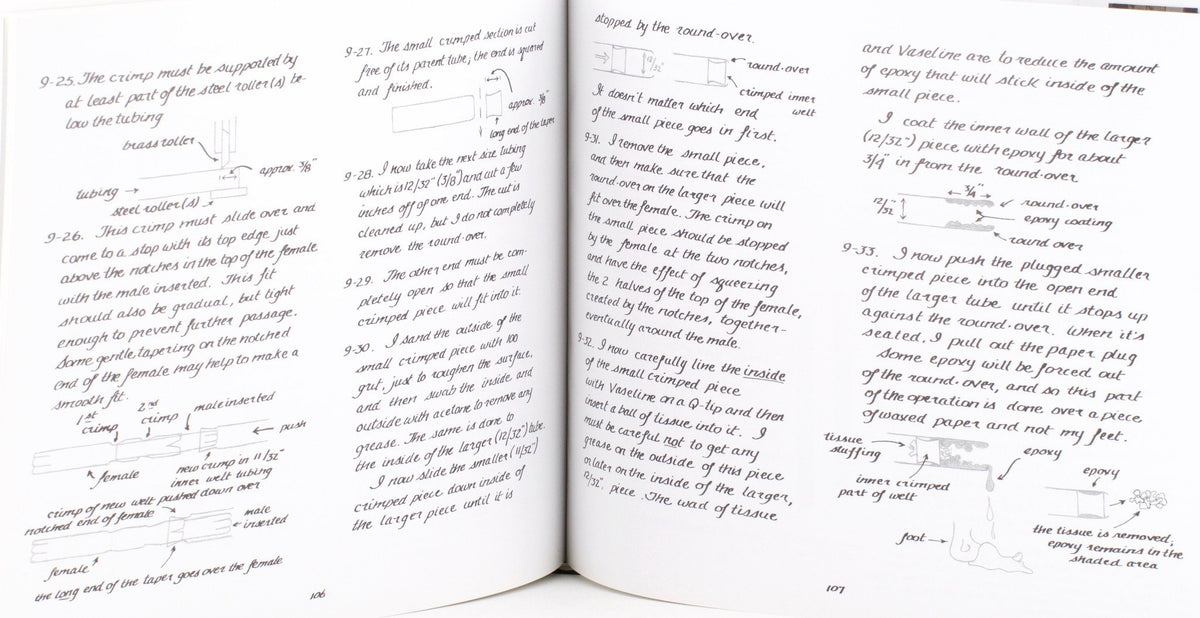 9-25. The crimp must be supported by
at least part of the steel roller(s) be-
low the tubing
brass roller
approx. 3/8"
tubing
steel roller(s)
9-26. This crimp must slide over and
come to a stop with its top edge just
above the notches in the top of the female
with the male inserted. This fit
should also be gradual, but tight
enough to prevent further passage.
Some gentle tapering on the notched
end of the female may help to make a
smooth fit.
1st crimp
2nd crimp
male inserted
push
female
new crimp in 11/32"
inner welt tubing
crimp of new welt pushed down over
notched end of female
male
inserted
female
the long end of the taper goes over the female
106
9-27. The small crimped section is cut
free of its parent tube; the end is squared
and finished.
approx. 3/8"
long end of the taper
9-28. I now take the next size tubing
which is 12/32" (3/8") and cut a few
inches off of one end. The cut is
cleaned up, but I do not completely
remove the round-over.
9-29. The other end must be com-
pletely open so that the small
crimped piece will fit into it.
9-30. I sand the outside of the
small crimped piece with 100
grit, just to roughen the surface,
and then swab the inside and
outside with acetone to remove any
grease. The same is done to
the inside of the larger (12/32") tube.
I now slide the smaller (11/32")
crimped piece down inside of
the larger piece until it is
stopped by the round-over.
12/32"
round-over
crimped inner
welt
It doesn't matter which end
of the small piece goes in first.
9-31. I remove the small piece,
and then make sure that the
round-over on the larger piece will
fit over the female. The crimp on
the small piece should be stopped
by the female at the two notches,
and have the effect of squeezing
the 2 halves of the top of the female,
created by the notches, together-
eventually around the male.
9-32. I now carefully line the inside
of the small crimped piece
with Vaseline on a Q-tip and then
insert a ball of tissue into it. I
must be careful not to get any
grease on the outside of this piece
or later on the inside of the larger,
12/32", piece. The wad of tissue
107
and Vaseline are to reduce the amount
of epoxy that will stick inside of the
small piece.
I coat the inner wall of the larger
(12/32") piece with epoxy for about
3/4" in from the round-over
3/4"
12/32"
round-over
epoxy coating
round over
9-33. I now push the plugged smaller
crimped piece into the open end
of the larger tube until it stops up
against the round-over. When it's
seated, I pull out the paper plug
Some epoxy will be forced out
of the round-over, and so this part
of the operation is done over a piece
of waxed paper and not my feet.
tissue
stuffing
epoxy
inner crimped
part of welt
epoxy
foot
the tissue is removed;
epoxy remains in the
shaded area